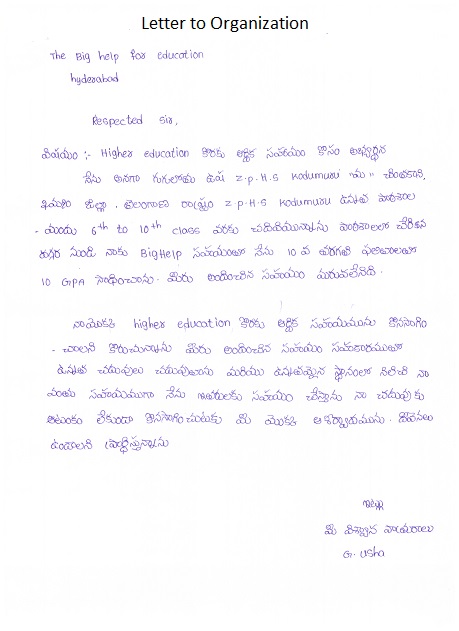 Letter to Organization
The Big help for education
hyderabad
Respected sir,
విషయం :- Higher education కొరకు ఆర్థిక సహాయం కోసం అభ్యర్థన
నేను అనగా గుగులోతు ఉష Z.P.H.S Kodumuru "మ" చింతకాని,
ఖమ్మం జిల్లా. తెలంగాణ రాష్ట్రం Z.P.H.S Kodumuru ఉన్నత పాఠశాల
- యందు 6th to 10th class వరకు చదివియున్నాను పాఠశాలలో చేరిన
దగ్గర నుండి నాకు BigHelp సహాయంతో నేను 10 వ తరగతి ఫలితాలలో
10 GPA సాధించాను. మీరు అందించిన సహాయం మరువలేనిది.
నాయొక్క higher education కొరకు ఆర్థిక సహాయమును కొనసాగిం
- చాలని కోరుచున్నాను మీరు అందించిన సహాయం సహకారముతో
ఉన్నత చదువులు చదువుతాను మరియు ఉన్నతమైన స్థానంలో నిలిచి నా
వంతు సహాయముగా నేను ఇతరులకు సహాయం చేస్తాను నా చదువుకు
ఆటంకం లేకుండా కొనసాగించుటకు మీ యొక్క ఆశీర్వాదమును. దీవెనలు
ఉండాలని ప్రార్థిస్తున్నాను
ఇట్లు
మీ విశ్వాస
G. usha